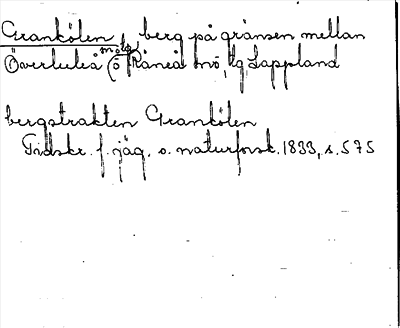 Grankölen, berg på gränsen mellan
Överluleå (o Råneå snö, Lappland
bergstrakten Grankölen
Tidskr. f. jäg. o. naturforsk. 1833, s. 575